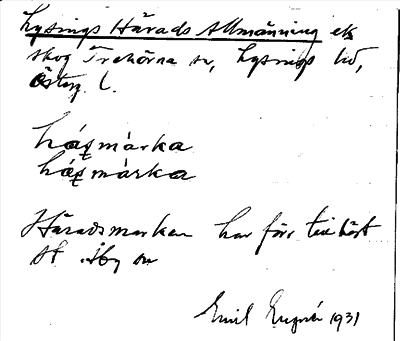 Lysings Härads Allmänning ek
skog Trehörna sn, Lysings hd,
Österg. l.
håẓmàrka
håẓmàrka
Häradsmarken har förr tillhört
St. Åby sn
Emil 1931